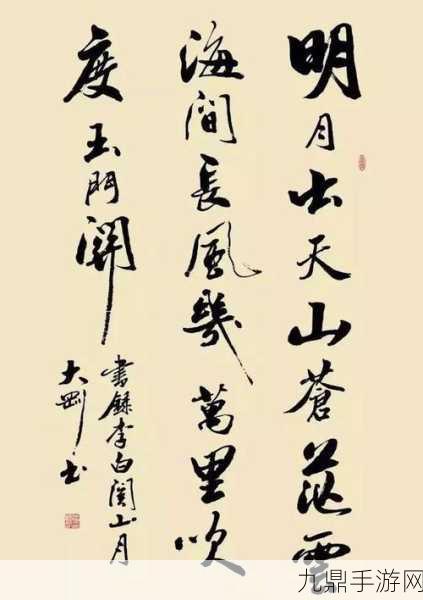 明月出天山蒼茫雲
海間長風幾萬里吹
度玉門關
書錄李白関山月
大剛书
九鼎手游网